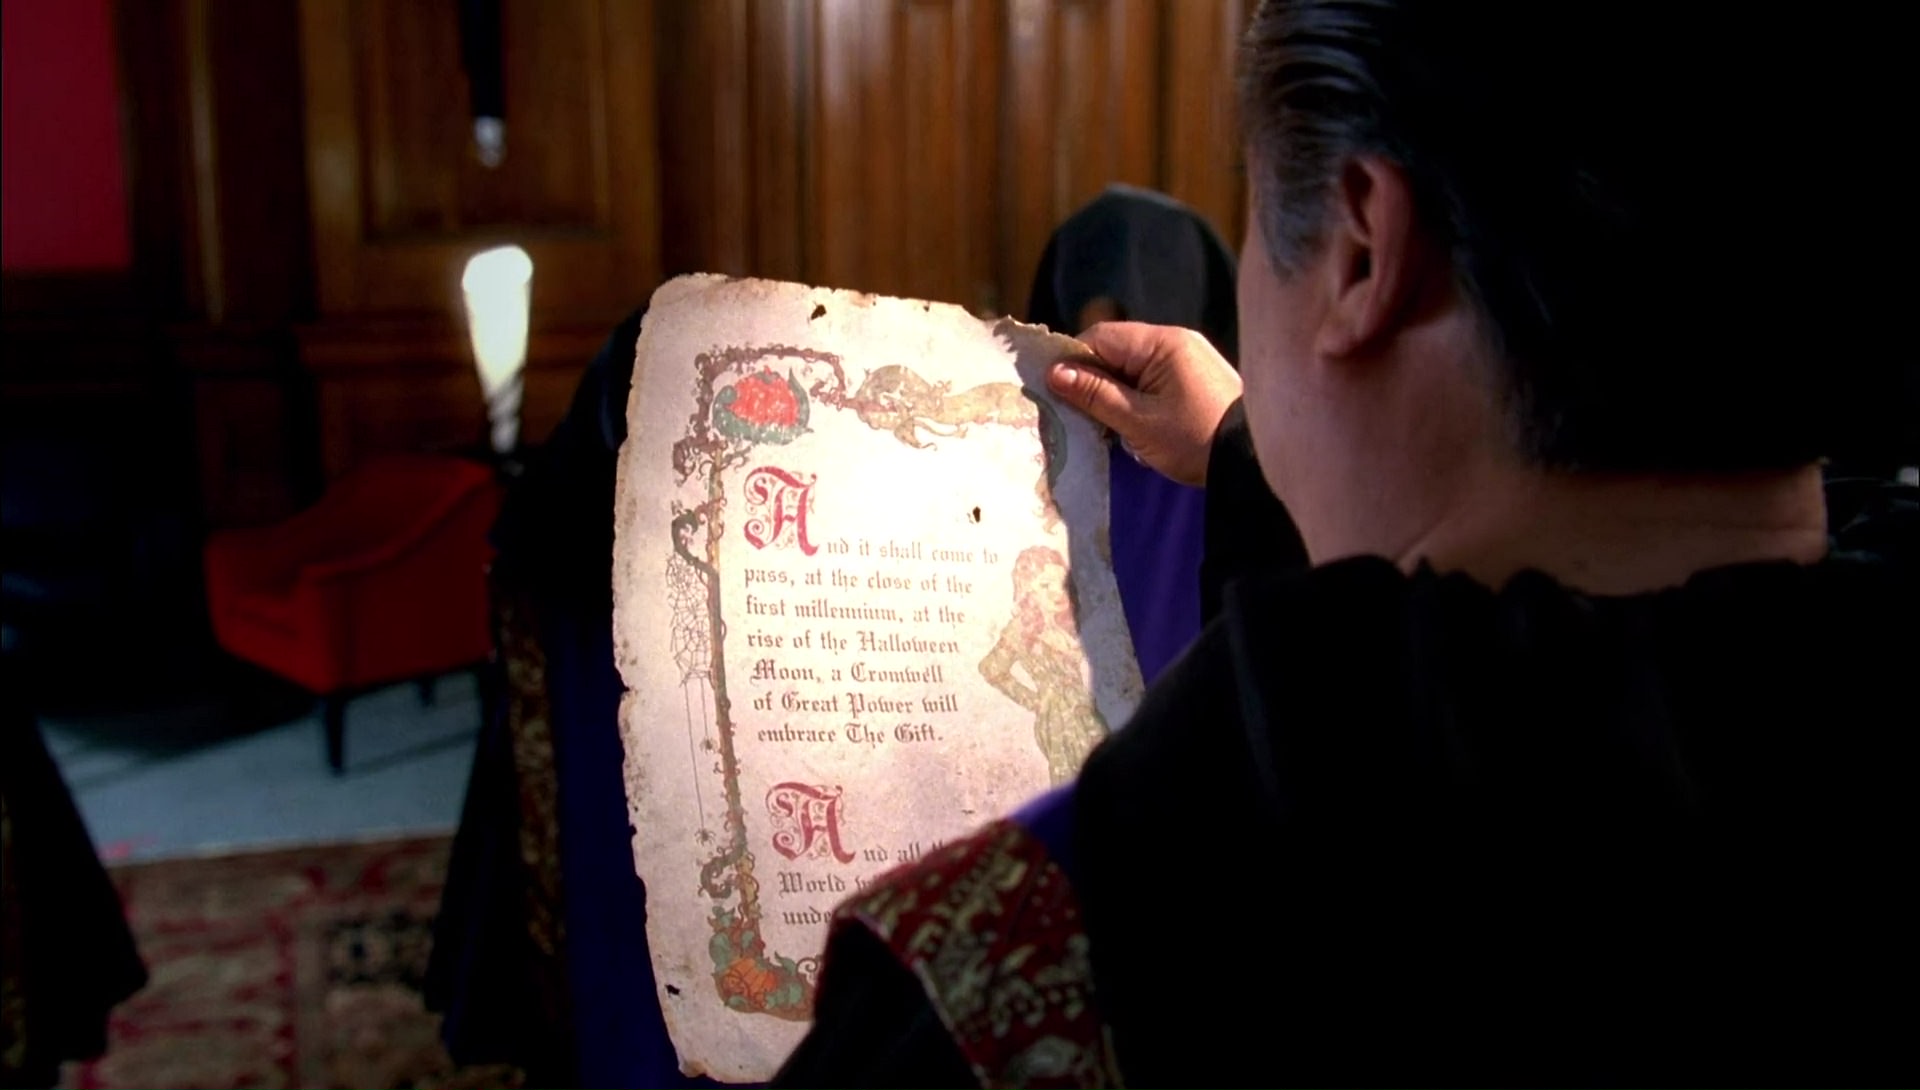 And it shall come to
pass, at the close of the
first millennium, at the
rise of the Halloween
Moon, a Cromwell
of Great Power will
embrace The Gift.
And all
World